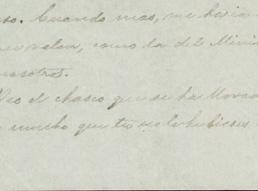 so. Cuando mas, me hspia
valor, como la del Mini
nosotros.
Veo el chasco que se ha llevado
mucho que tu no lo hubieses